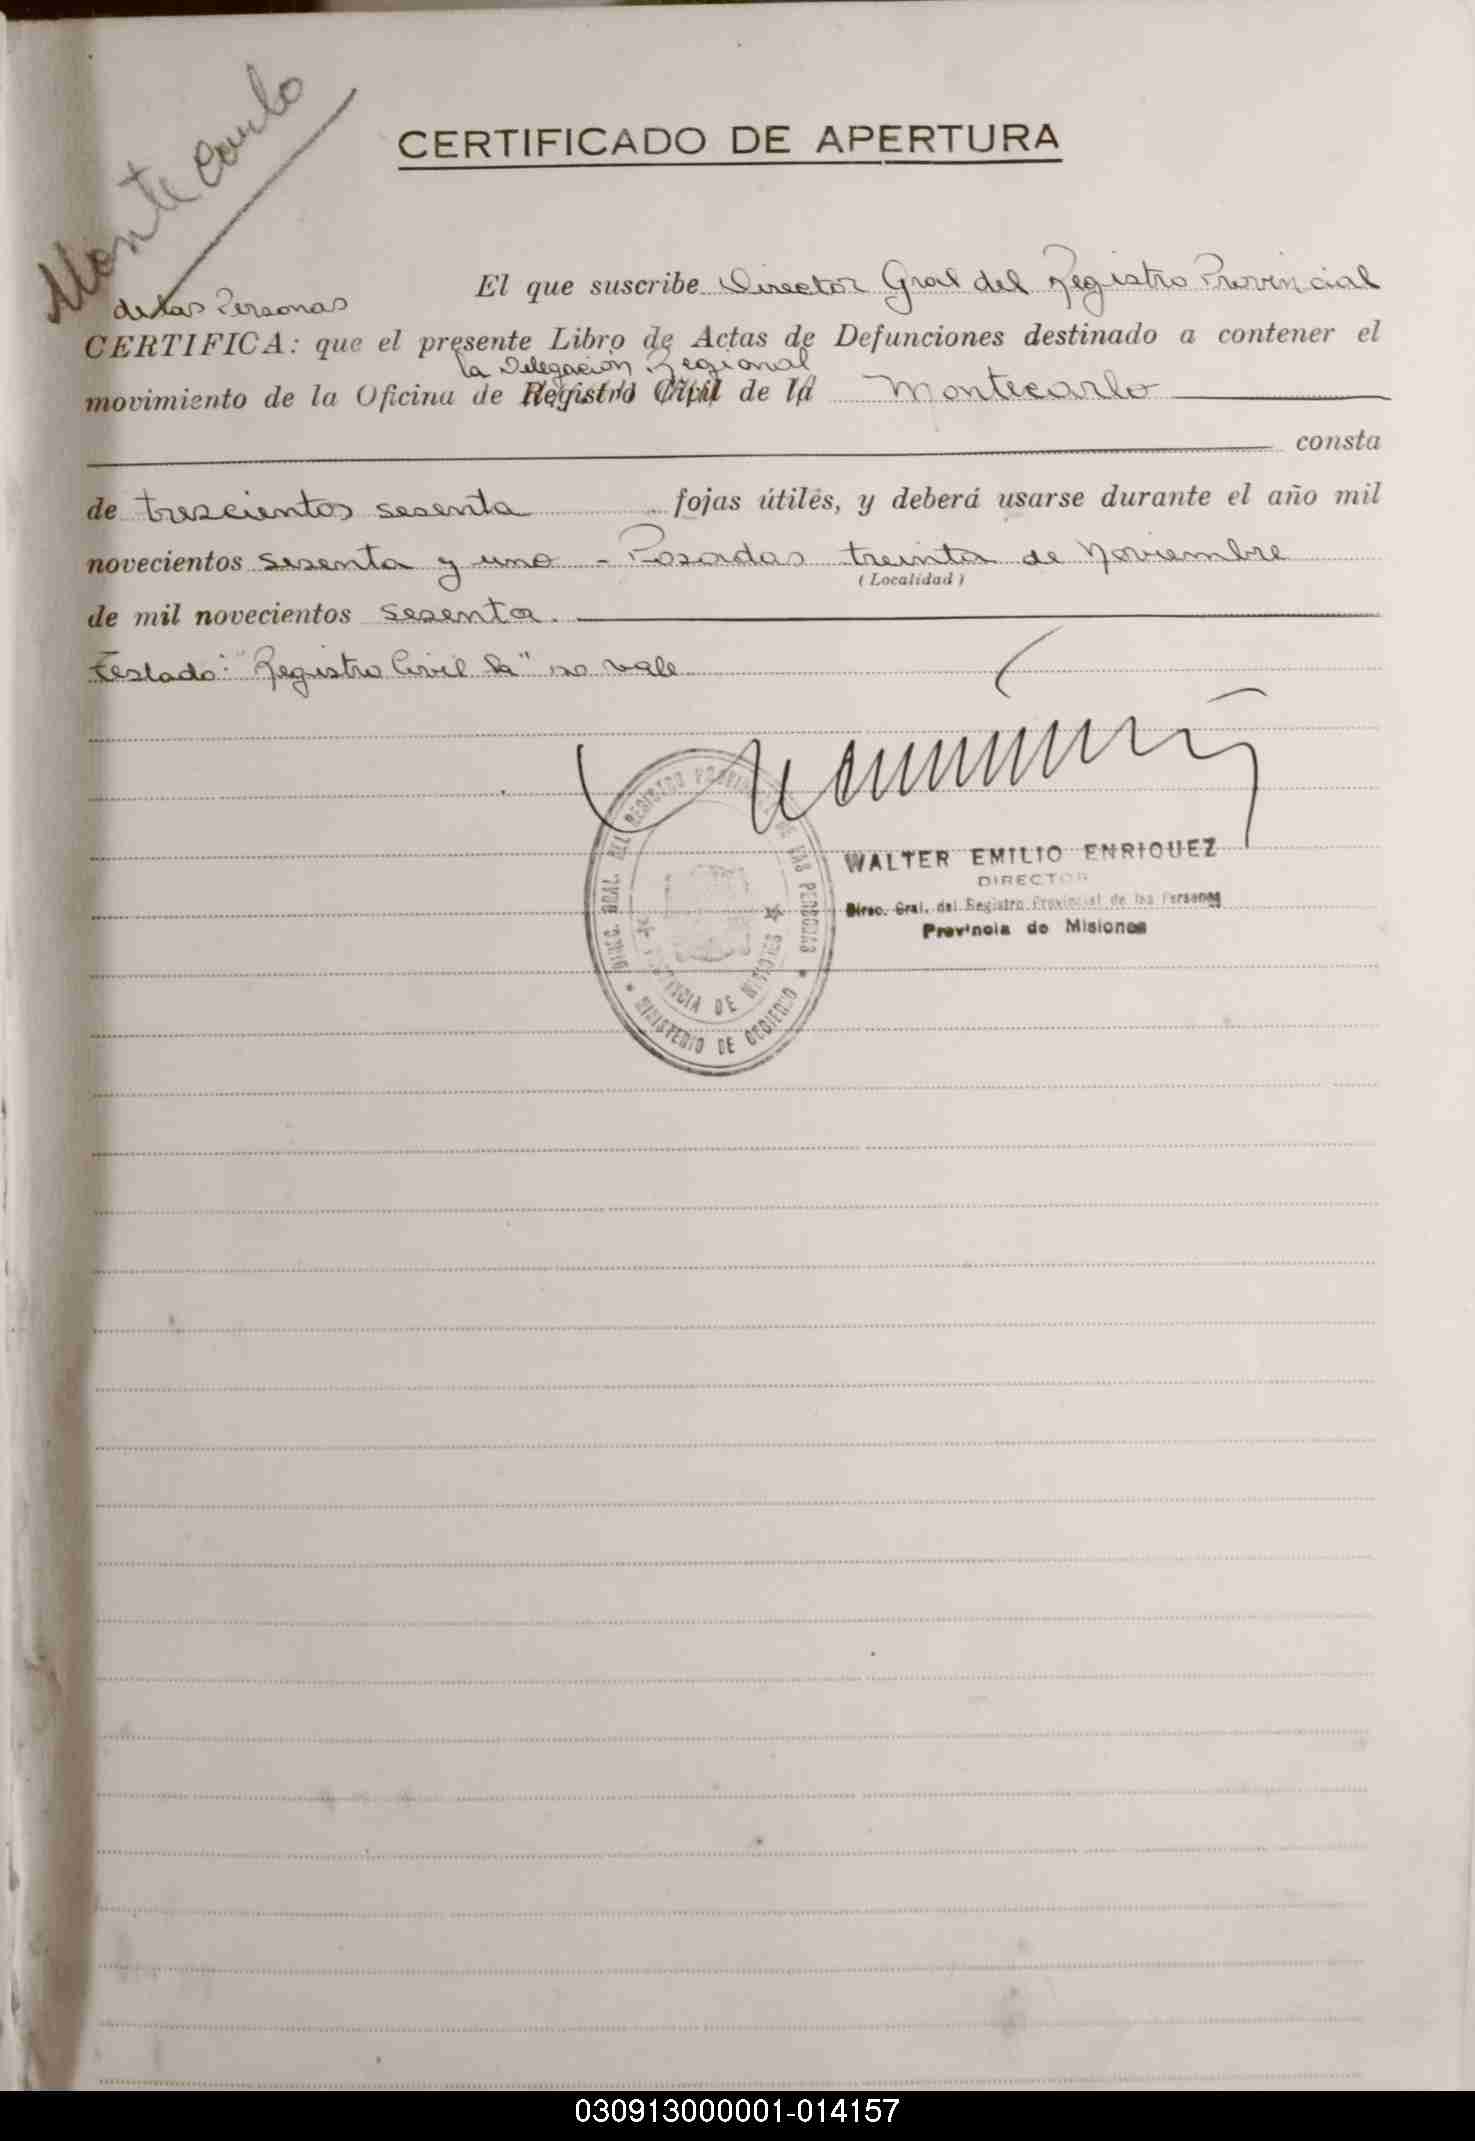 Monte Carlo
CERTIFICADO DE APERTURA
El que suscribe Director Gral del Registro Provincial
de las Personas
CERTIFICA: que el presente Libro de Actas de Defunciones destinado a contener el
la Delegación Regional
movimiento de la Oficina de Registro Civil de la Montecarlo
consta
de trescientos sesenta fojas útiles, y deberá usarse durante el año mil
novecientos sesenta y uno - Posadas treinta de Noviembre
(Localidad)
de mil novecientos sesenta.
Testado: "Registro Civil la" no vale
WALTER EMILIO ENRIQUEZ
DIRECTOR
Direc. Gral. del Registro Provincial de las Personas
Provincia de Misiones
DIREC. GRAL. DEL REGISTRO PROVINCIAL DE LAS PERSONAS
MINISTERIO DE GOBIERNO
PROVINCIA DE MISIONES
030913000001-014157